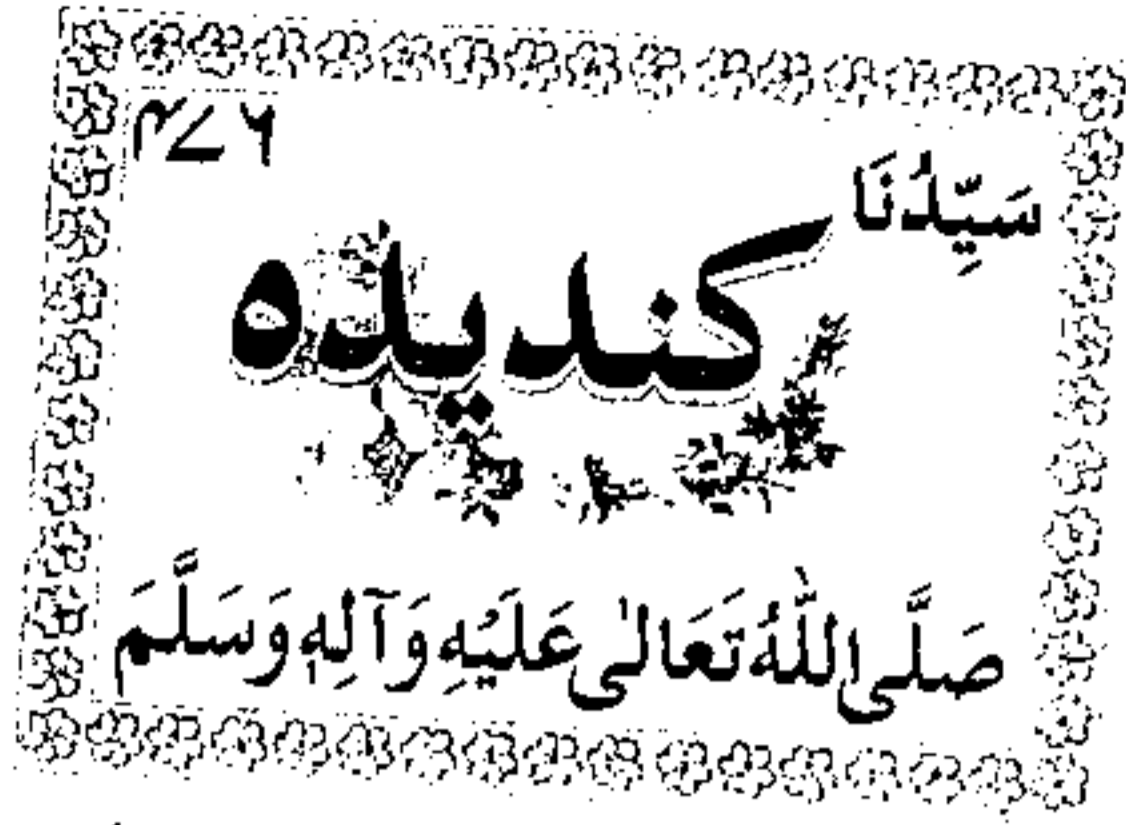 سَيِّدُنَا
کندیدہ
صَلَّى اللّٰهُ تَعَالٰى عَلَيْهِ وَآلِهٖ وَسَلَّمَ